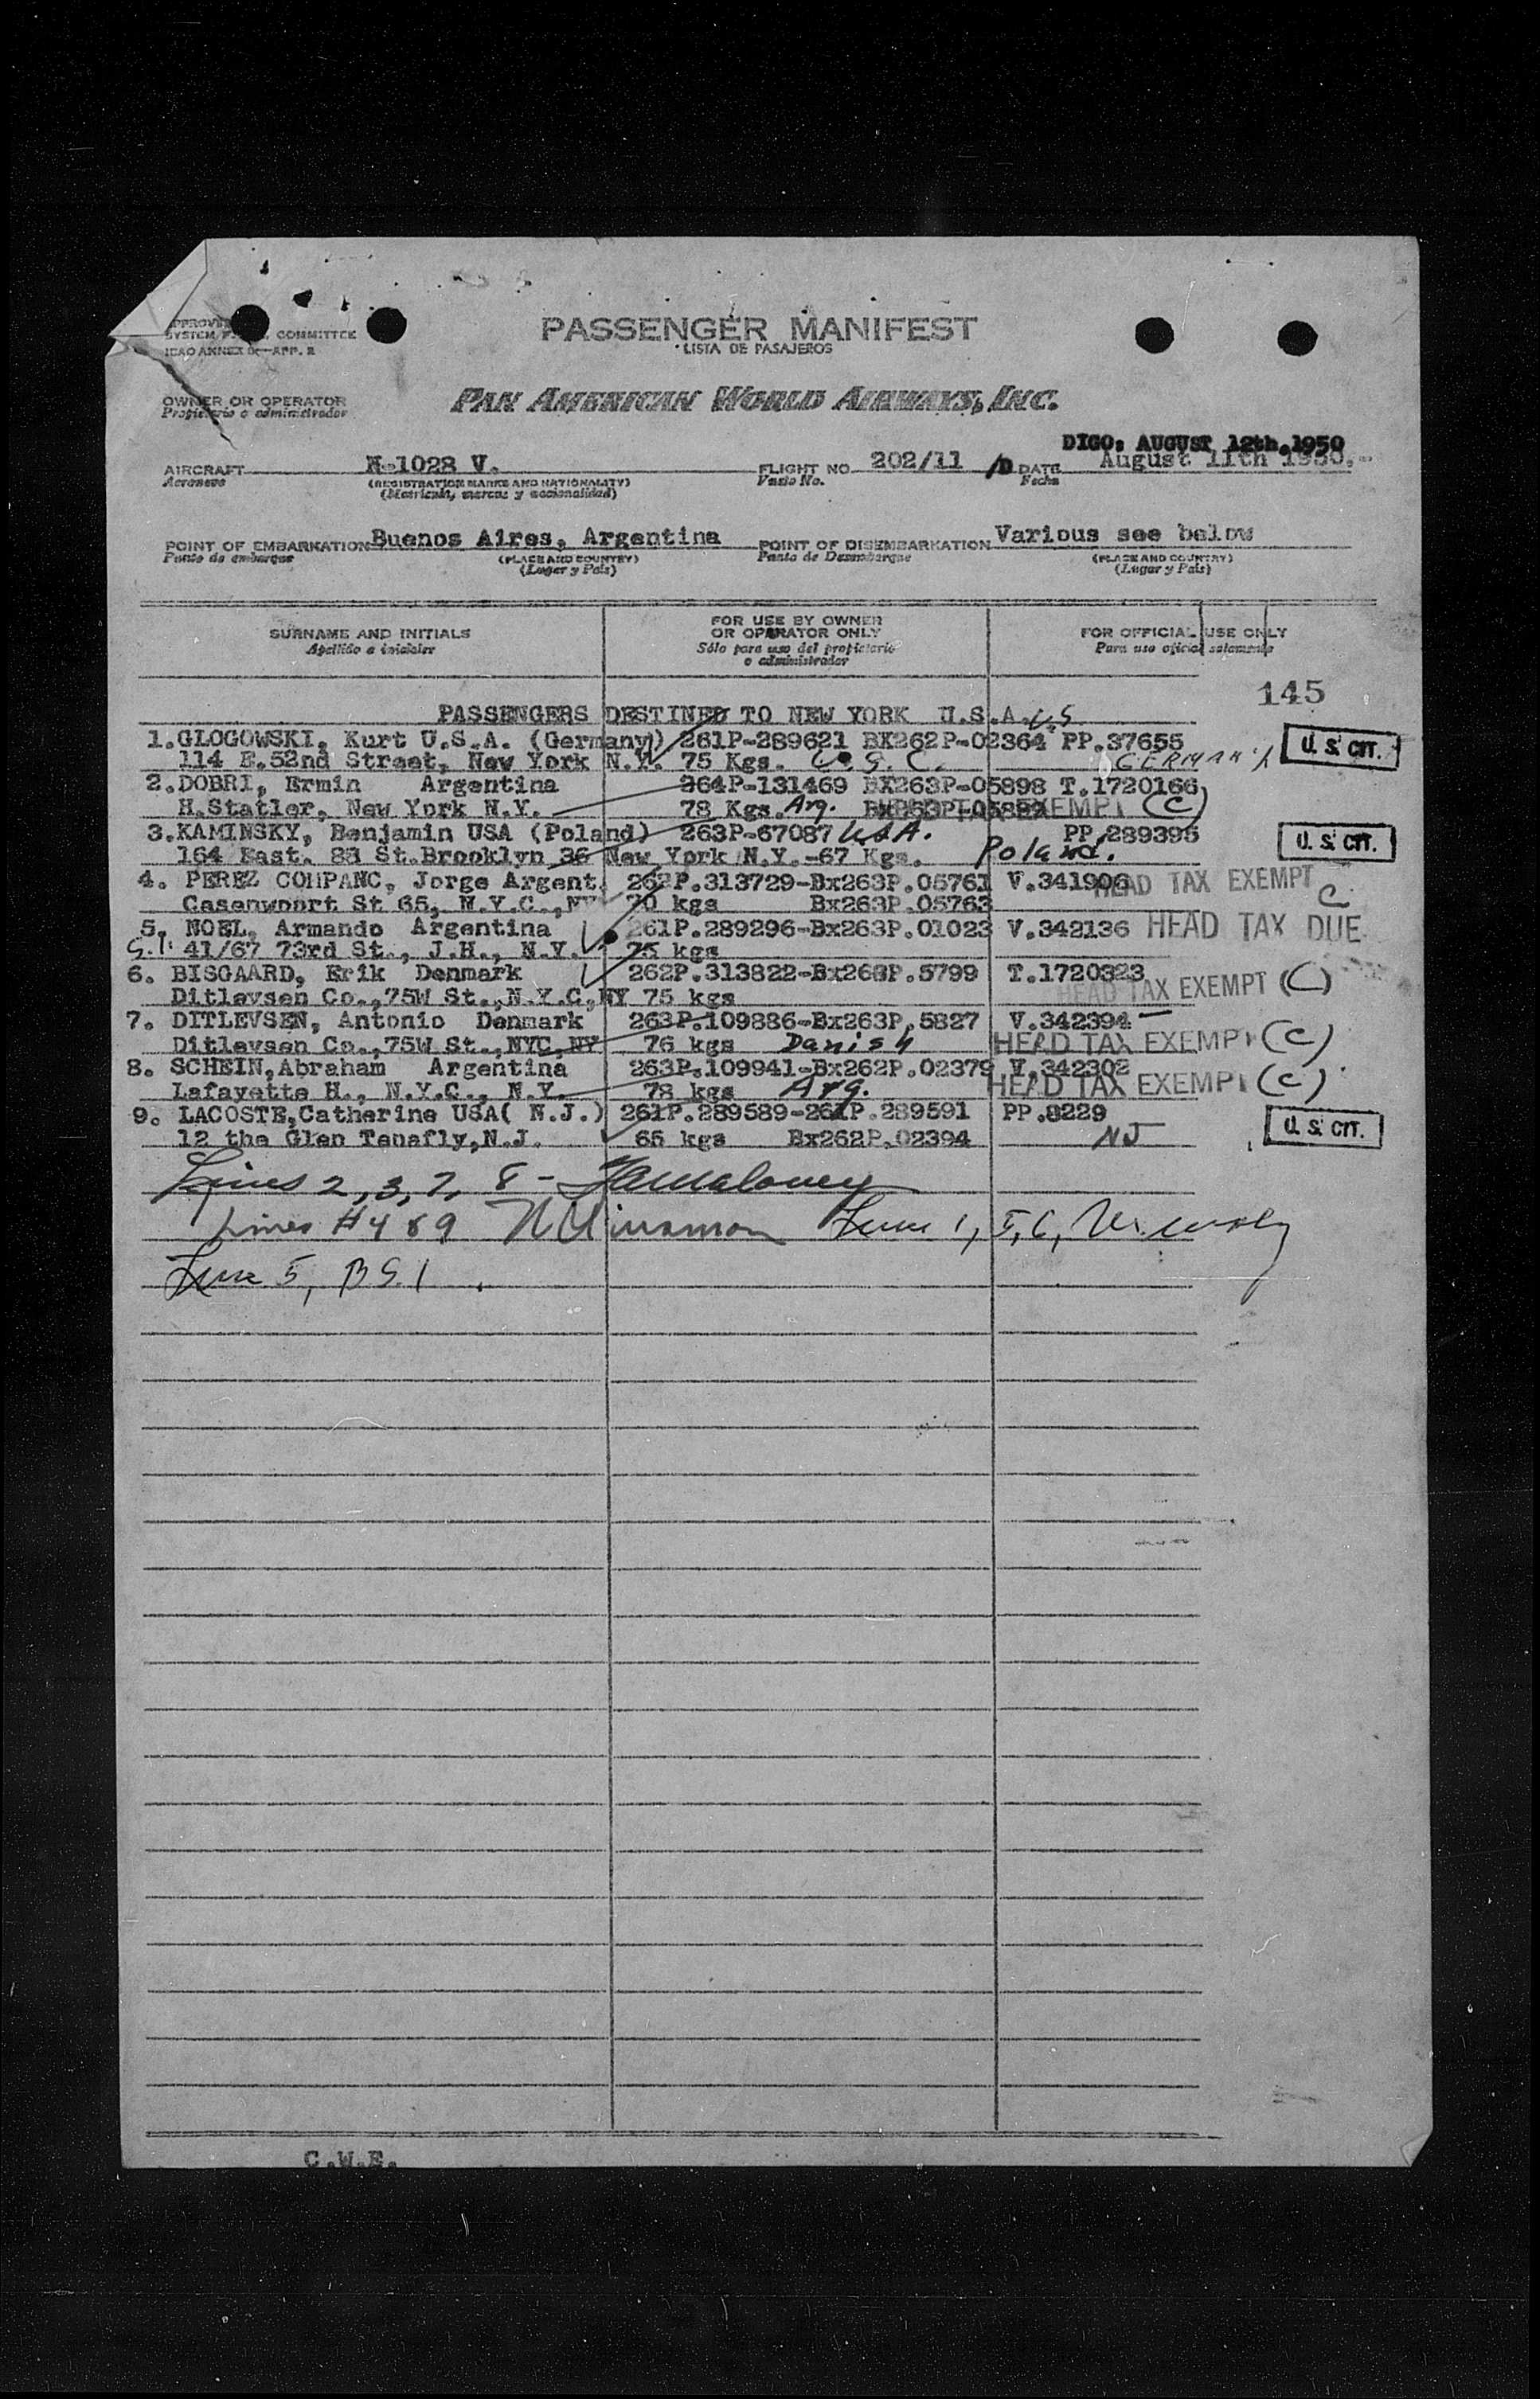 PASSENGER MANIFEST
LISTA DE PASAJEROS
SYSTEM COMMITTEE
ICAO ANNEX 9-APP. 2
OWNER OR OPERATOR
Propietario o administrador
PAN AMERICAN WORLD AIRWAYS, INC.
DIGO: AUGUST 12th.1950
AIRCRAFT N-1028 V. FLIGHT NO. 202/11 /D DATE August 11th 1950.-
Aeronave (REGISTRATION MARKS AND NATIONALITY) Vuelo No. Fecha
(Matricula, marcas y nacionalidad)
POINT OF EMBARKATION Buenos Aires, Argentina POINT OF DISEMBARKATION Various see below
Punto de embarque (PLACE AND COUNTRY) Punto de Desembarque (PLACE AND COUNTRY)
(Lugar y Pais) (Lugar y Pais)
SURNAME AND INITIALS FOR USE BY OWNER OR OPERATOR ONLY FOR OFFICIAL USE ONLY
Apellido e iniciales Sólo para uso del propietario o administrador Para uso oficial solamente
145
PASSENGERS DESTINED TO NEW YORK U.S.A. U.S.
1.GLOGOWSKI, Kurt U.S.A. (Germany) 261P-289621 BX262P-02364 PP.37655 U. S. CIT.
114 E.52nd Street, New York N.Y. 75 Kgs. U.S.C. GERMANY
2.DOBRI, Ermin Argentina 264P-131469 BX263P-05898 T.1720166
H.Statler, New York N.Y. 78 Kgs. Arg. EXEMPT (C)
3.KAMINSKY, Benjamin USA (Poland) 263P-67087 USA. PP.289395 U. S. CIT.
164 East. 88 St.Brooklyn 36 New York N.Y.-67 Kgs. Poland.
4. PEREZ COMPANC, Jorge Argent. 262P.313729-Bx263P.05761 V.341906 HEAD TAX EXEMPT C
St 65, N.Y.C.,NY 70 kgs Bx263P.05763
5. NOEL, Armando Argentina 261P.289296-Bx263P.01023 V.342136 HEAD TAX DUE
S.I. 41/67 73rd St., J.H., N.Y. 75 kgs
6. BISGAARD, Erik Denmark 262P.313822-Bx263P.5799 T.1720323
Ditlevsen Co.,75W St.,N.Y.C,NY 75 kgs HEAD TAX EXEMPT (C)
7. DITLEVSEN, Antonio Denmark 263P.109886-Bx263P.5827 V.342394
Ditlevsen Co.,75W St.,NYC,NY 76 kgs Danish HEAD TAX EXEMPT (C)
8. SCHEIN,Abraham Argentina 263P.109941-Bx262P.02379 V.342302
Lafayette H., N.Y.C., N.Y. 78 kgs Arg. HEAD TAX EXEMPT (C)
9. LACOSTE,Catherine USA( N.J.) 261P.289589-261P.289591 PP.8229
12 the Glen Tenafly,N.J. 65 kgs Bx262P.02394 NJ U. S. CIT.
Lines 2, 3, 7, 8 -
Lines #4 & 9 Lines 1, 5, 6,
Line 5, B S.I.
C.W.E.